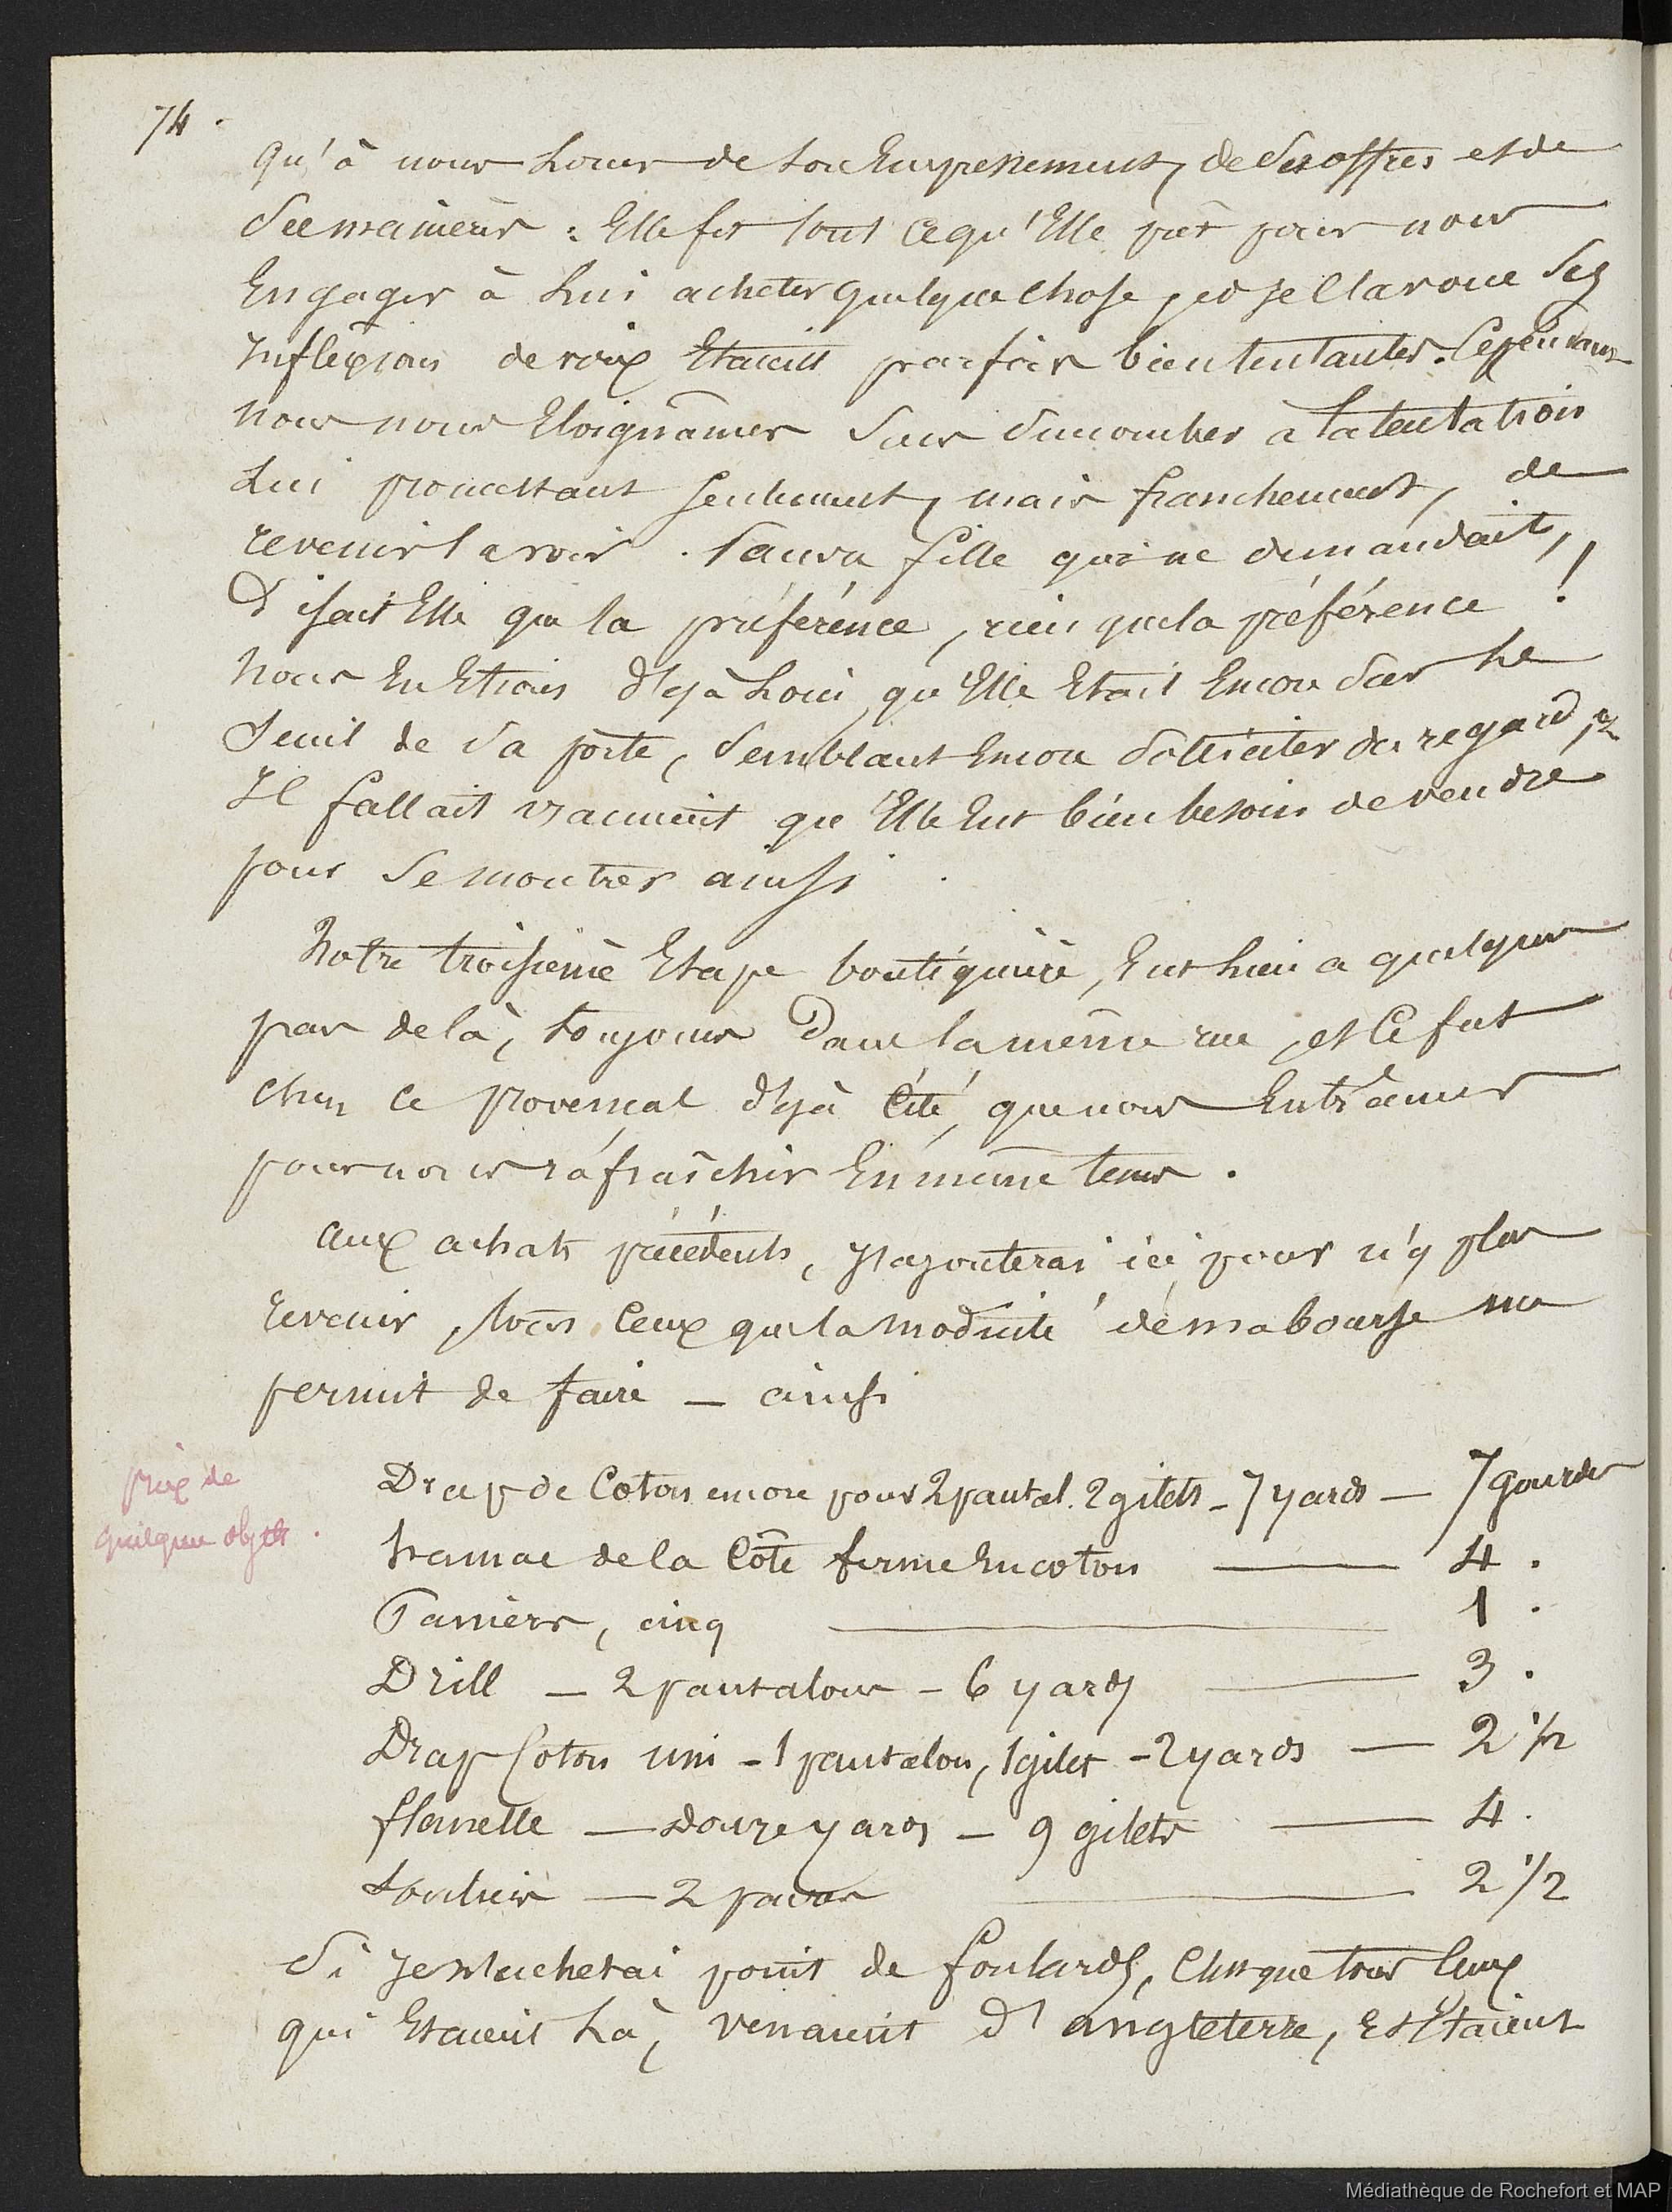 74.
qu'à nous louer de son Empressement, de ses offres et de
ses manières : Elle fit tout ce qu'Elle pût pour nous
Engager à Lui acheter quelque chose, et je l'avoue ses
inflexions de voix Etaient parfois bien tentantes. Cependant
nous nous Eloignâmes sans succomber à la tentation
Lui promettant seulement, mais franchement, de
revenir la voir. Pauvre fille qui ne demandait,
Disait Elle que la préférence, rien que la préférence !
nous En Etions déjà Loin, qu'Elle Etait Encore sur le
seuil de sa porte, semblant Encore solliciter du regard,
Il fallait vraiment qu'Elle Eut bien besoin de vendre
pour se montrer ainsi.
Notre troisième Etape boutiquière, Eut lieu a quelques
pas de là, toujours Dans la même rue, et ce fut
chez ce provençal déjà Cité, que nous Entrâmes
pour nous rafraîchir En même tems.
aux achats précédents, j'ajouterai ici, pour n'y plus
revenir, tous ceux que la modicité de ma bourse me
permit de faire — ainsi
prix de
quelques objets.
Drap de Coton encore pour 2 pantal. 2 gilets - 7 yards — 7 gourdes
hamac de la Côte ferme En coton — 4.
Paniers, cinq — 1.
Drill — 2 pantalons - 6 yards — 3.
Drap Coton uni - 1 pantalon, 1 gilet - 2 yards — 2 1/2
flanelle — Douze yards — 9 gilets — 4.
Souliers — 2 paires — 2 1/2
Si je n'achetai point de foulards, C'est que tous Ceux
qui Etaient Là, venaient d'angleterre, Et Etaient
Médiathèque de Rochefort et MAP